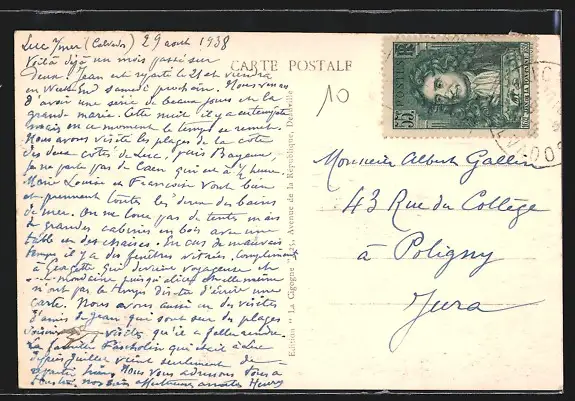 Luc s/mer (Calvados) 29 août 1938
Voilà déjà un mois passé sur
deux! Jean est reparti le 21 et viendra
en Week End samedi prochain. Nous venons
d'avoir une série de beaux jours et la
grande marée. Cette nuit il y a eu tempête
mais en ce moment le temps se remet.
Nous avons visité les plages de la côte
des deux côtés de Luc, puis Bayeux,
je ne parle pas de Caen qui est à 1/2 heure.
Marie Louise et Françoise vont bien
et prennent toutes les deux des bains
de mer. On ne loue pas de tentes mais
de grandes cabines en bois avec une
table et des chaises. En cas de mauvais
temps il y a des fenêtres vitrées. Compliments
à Georgette qui devient voyageuse et
mondaine puisqu'elle même
n'eut pas le temps d'écrire une
carte. Nous avons aussi eu des visites
d'amis de Jean qui sont sur des plages
voisines visites qu'il a fallu rendre.
La famille qui était à Luc
depuis Juillet vient seulement de
repartir hier. Nous vous adressons tous à
nos bien affectueux
CARTE POSTALE
10
Edition "La Cigogne", 125, Avenue de la République, Deauville
POSTES
Monsieur Albert Gallin
43 Rue du Collège
à Poligny
Jura